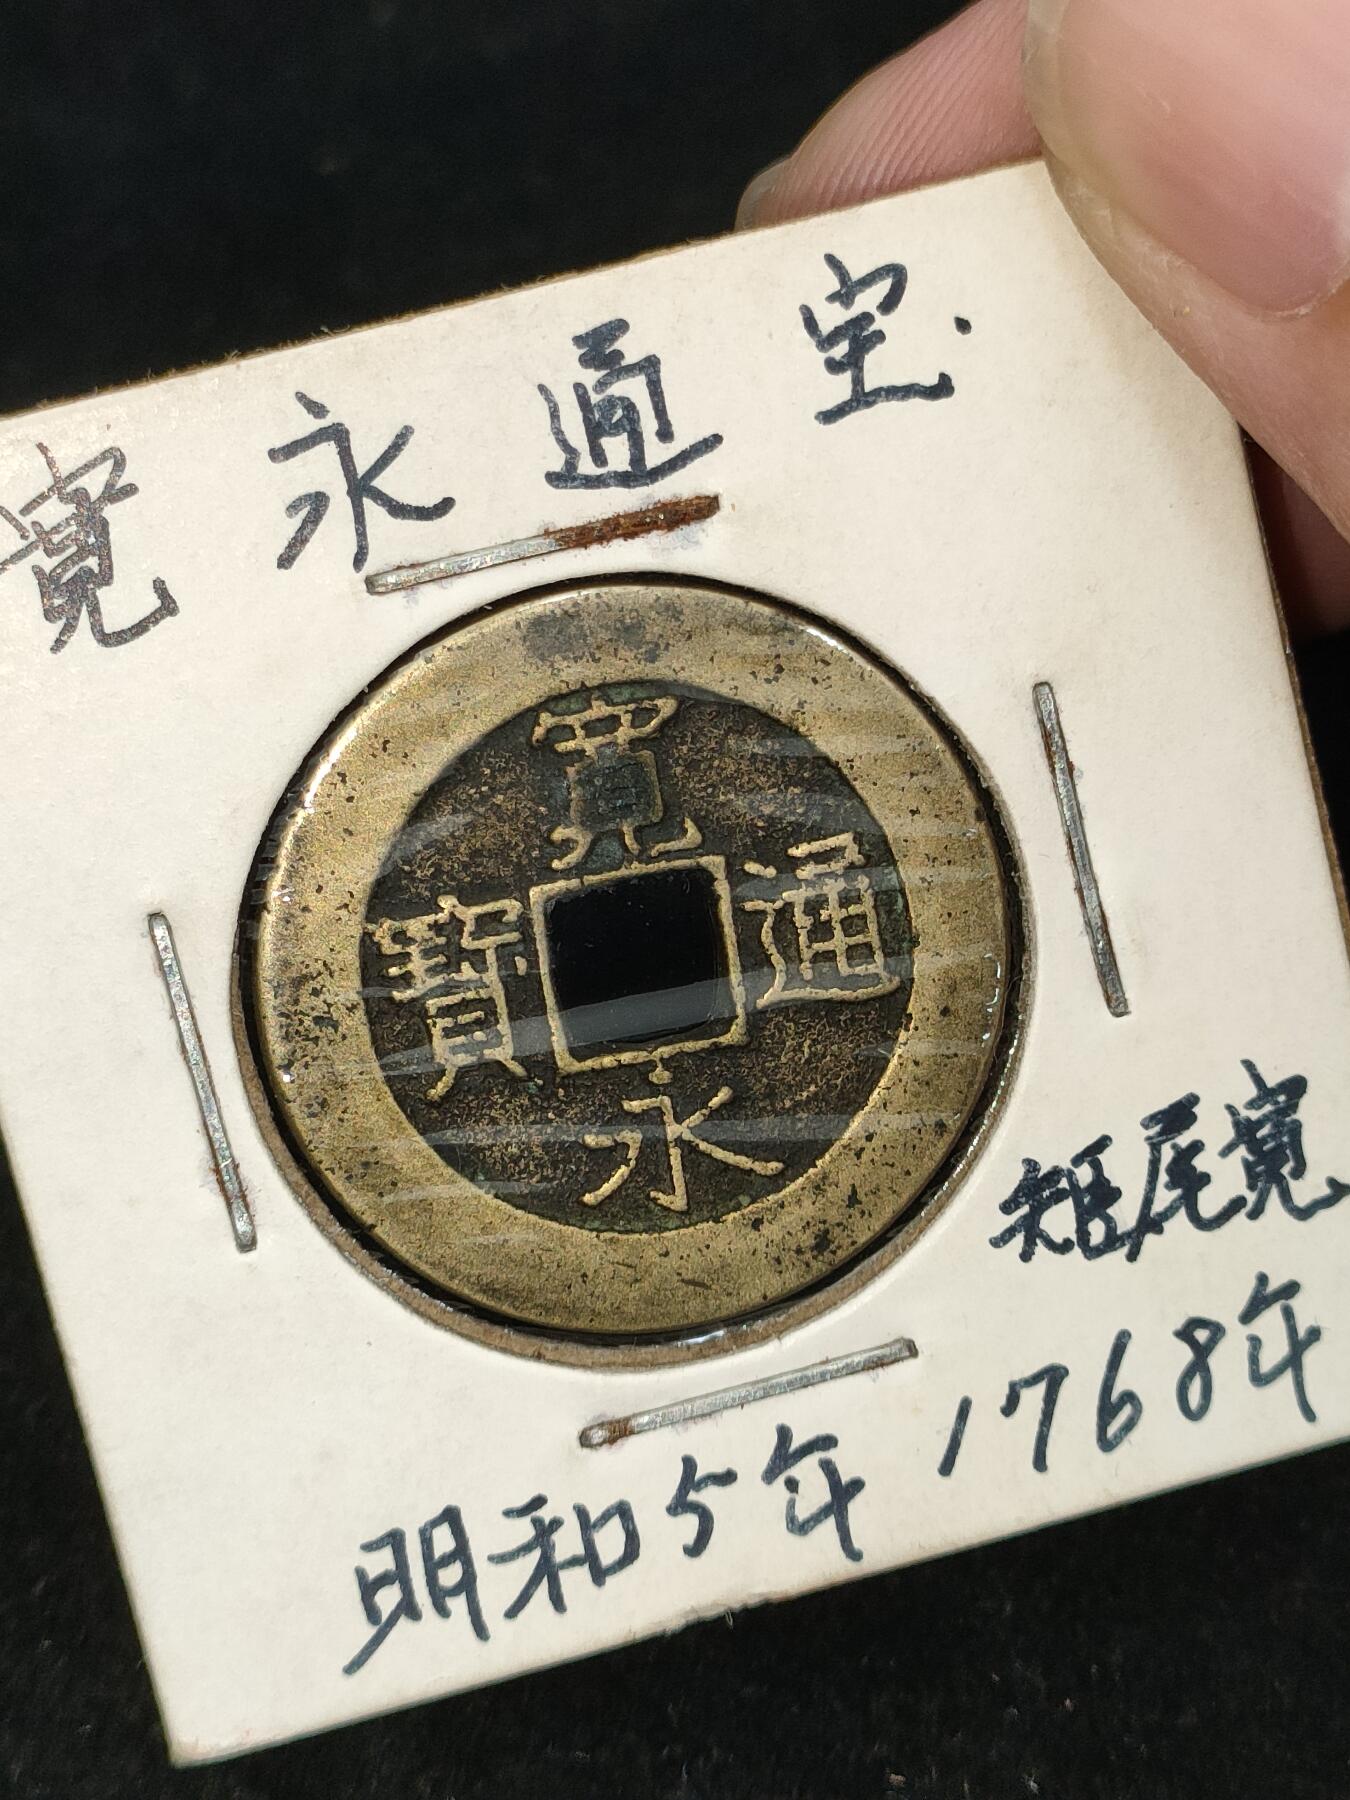 寛永通宝.
寛
通
寳
永
短尾寛
明和5年 1768年